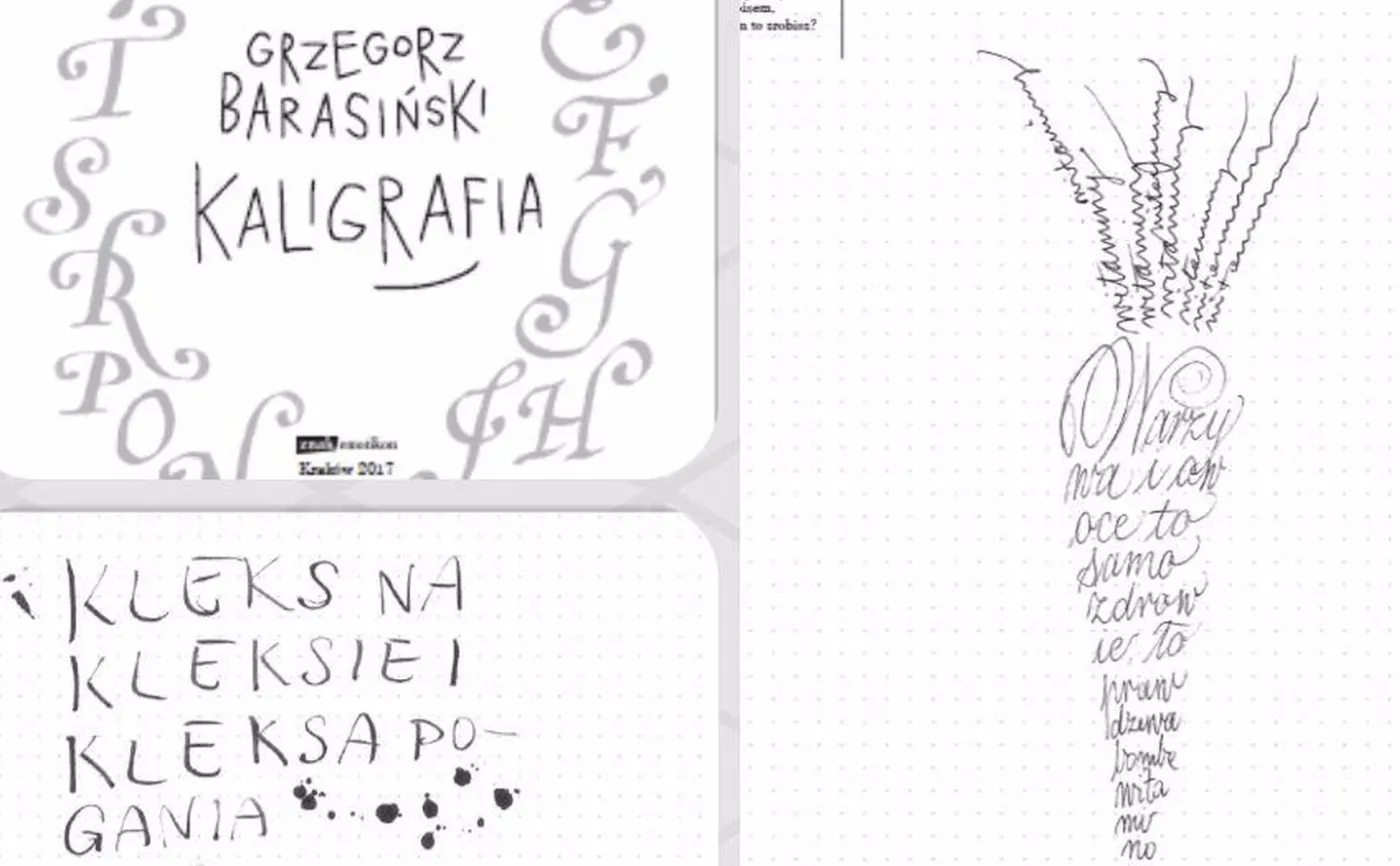 T
S
R
P
O
N
GRZEGORZ
BARASIŃSKI
KALIGRAFIA
E
F
G
H
znak emotikon
Kraków 2017
KLEKS NA
KLEKSIE I
KLEKSA PO-
GANIA
to zrobisz?
witaminy
witaminy
witaminy
Warzy
wa i ow
oce to
samo
zdrow
ie. To
praw
dziwa
bomba
wita
mi
no